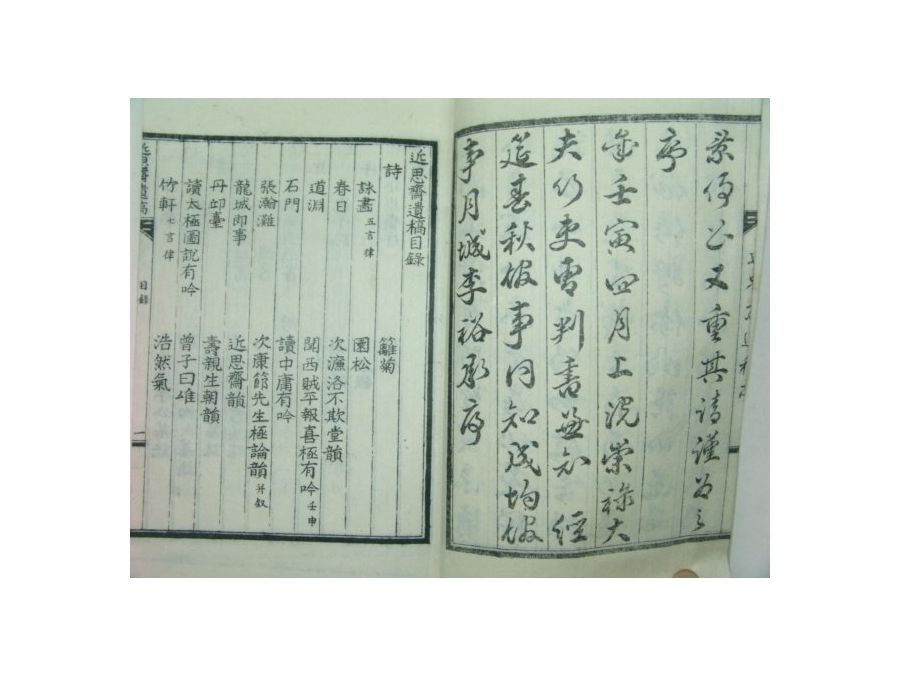 公又重其請謹爲之
序
歲壬寅四月上浣崇祿大
夫行吏曹判書兼知經
筵春秋館事同知成均館
事月城李裕承序
近思齋遺稿目錄
詩 籬菊
詠畵 五言律 園松
春日 次濂洛不欺堂韻
道淵 關西賊平報喜極有吟 壬申
石門 讀中庸有吟
張瀚灘 次康節先生極論韻 幷叙
龍城即事 近思齋韻
丹邱臺 壽親生朝韻
讀太極圖說有吟 曾子曰唯
竹軒 七言律 浩然氣
近思齋遺稿 目錄 一